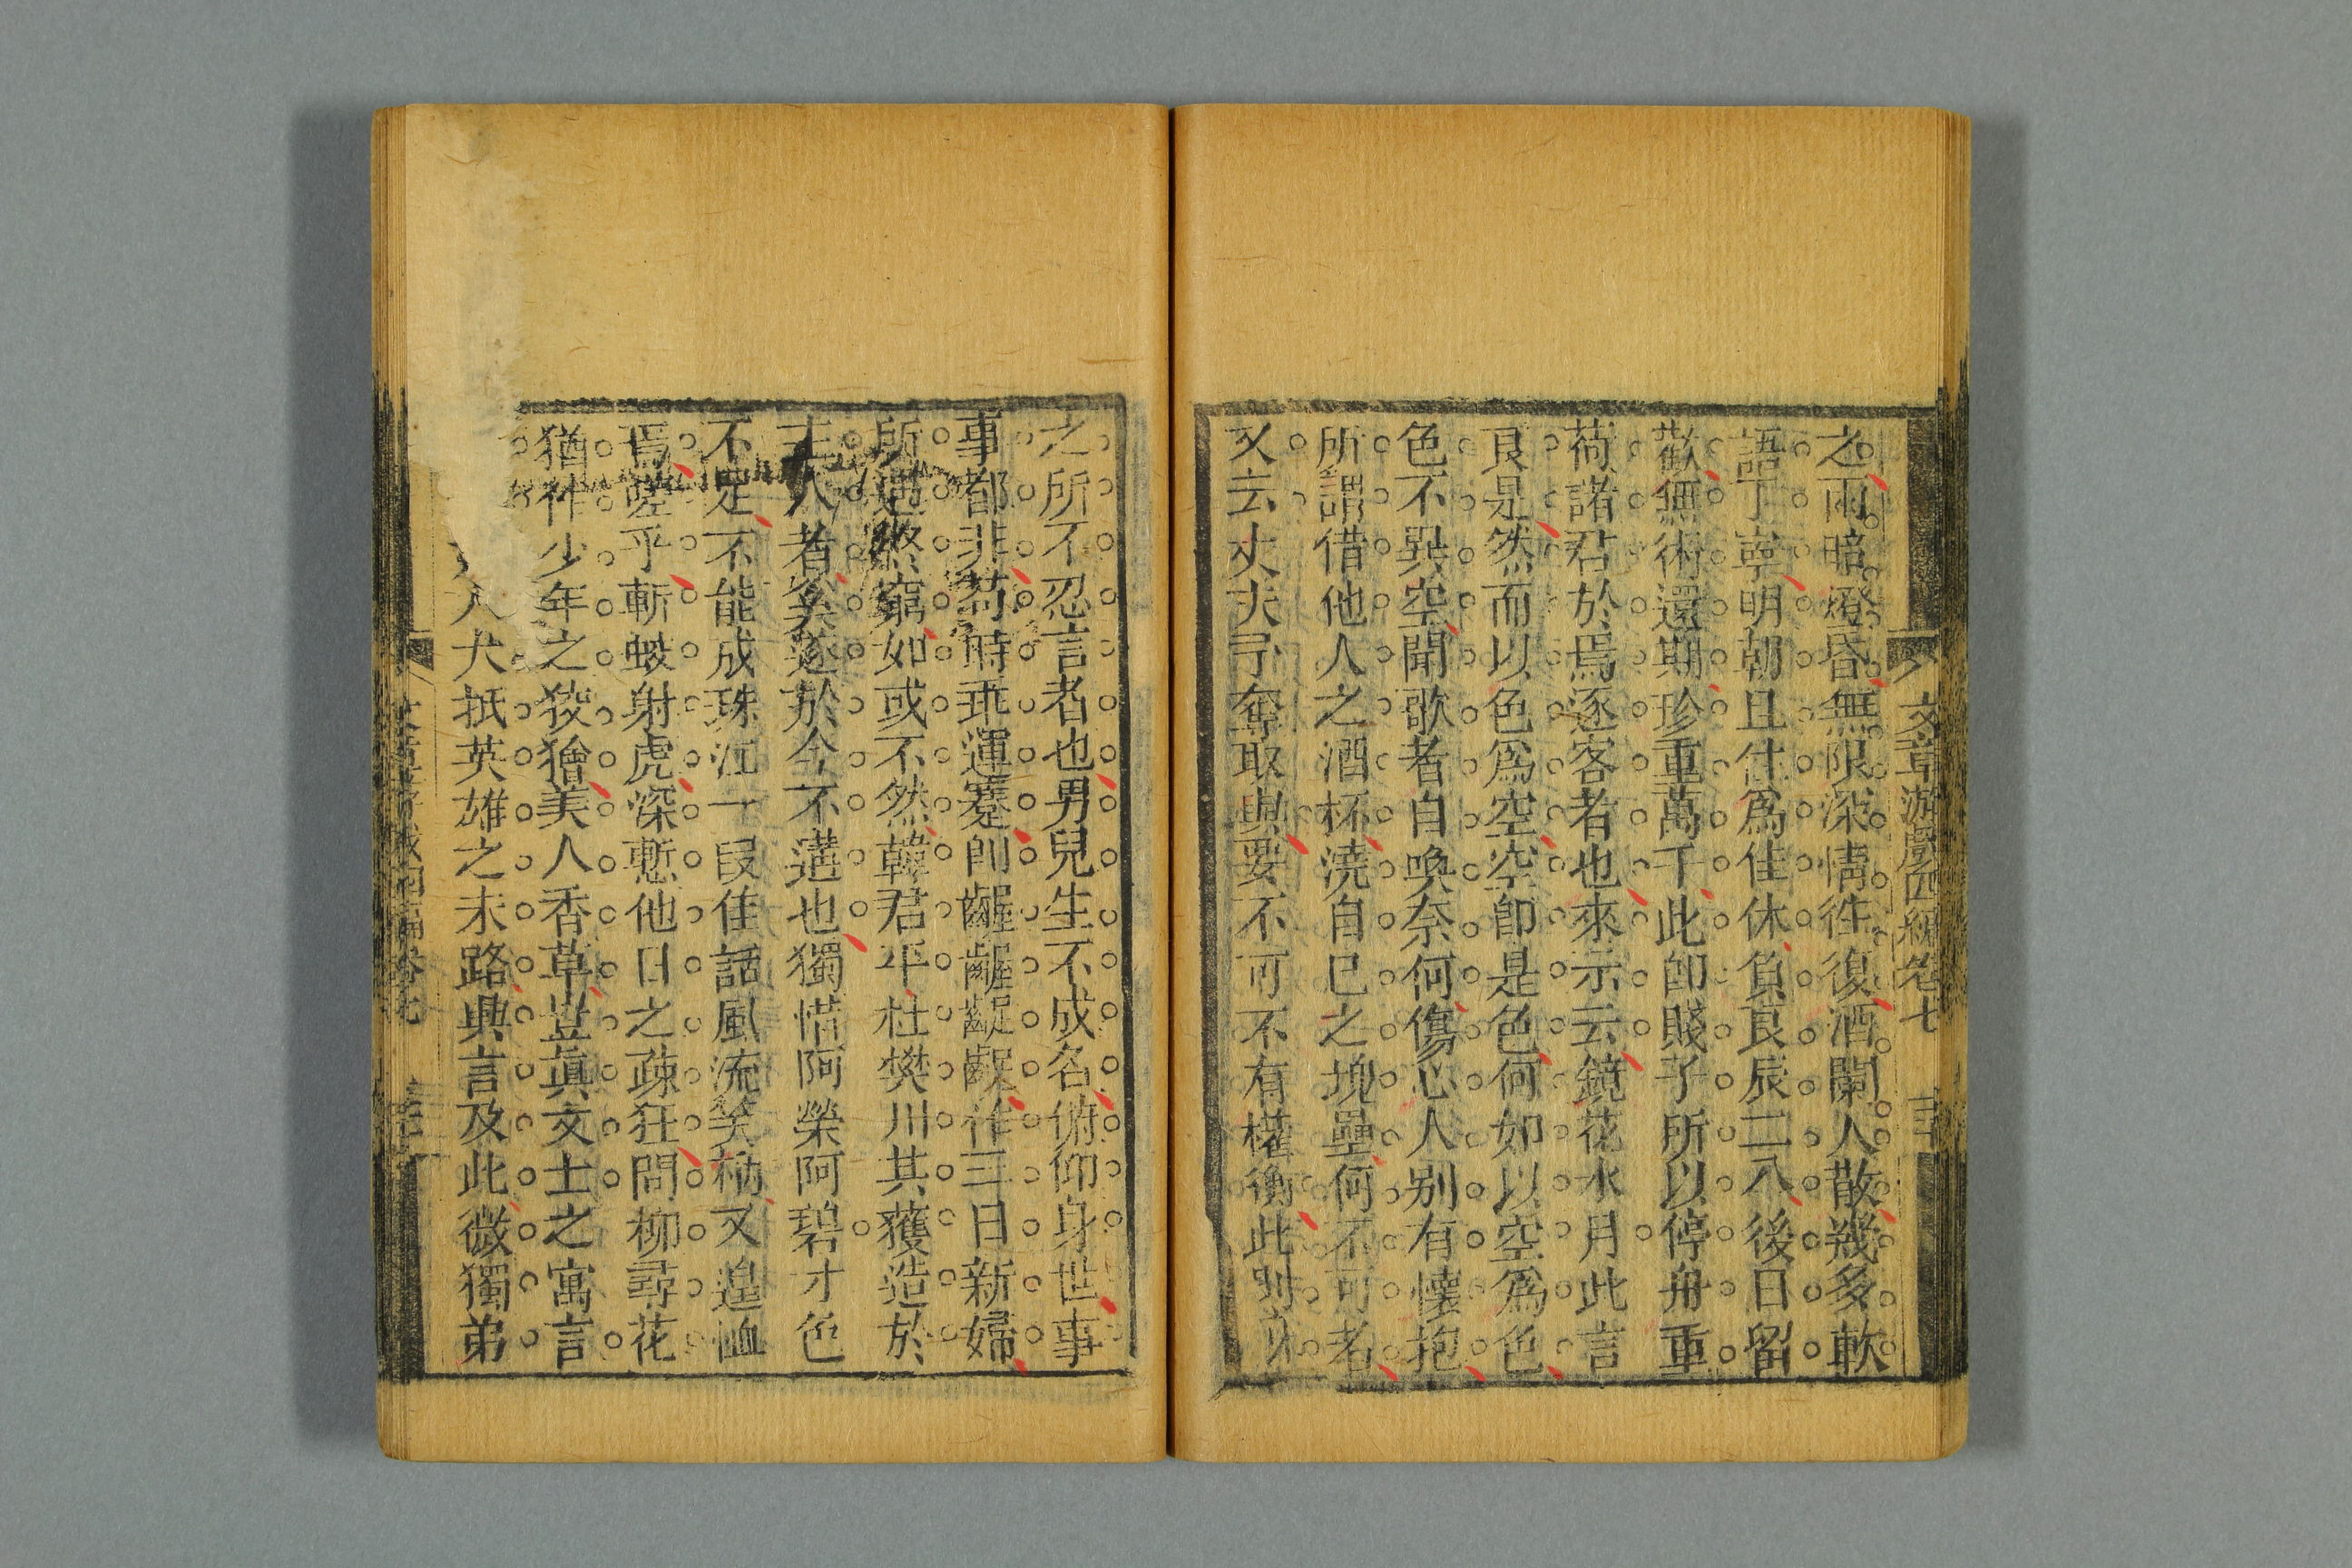 文章游戲四編卷七
之雨暗燈昏無限深情往復酒闌人散幾多軟
語丁寧明朝且住爲佳休負良辰二八後日留
歡無術還期珍重萬千此卽賤子所以停舟重
荷諸君於焉逐客者也來示云鏡花水月此言
良是然而以色爲空空卽是色何如以空爲色
色不異空聞歌者自喚奈何傷心人別有懷抱
所謂借他人之酒杯澆自己之塊壘何不可者
又云丈夫予奪取與要不可不有權衡此則
之所不忍言者也男兒生不成名俯仰身世事
事都非苟時乖運蹇卽齷齷齪齪作三日新婦
所遇終窮如或不然韓君平杜樊川其獲造於
主人者奚遂於今不遘也獨惜阿榮阿碧才色
不足不能成珠江一段佳話風流笑柄又遑恤
焉嗟乎斬蛟射虎深慙他日之疎狂問柳尋花
猶作少年之狡獪美人香草豈眞文士之寓言
人犬抵英雄之末路興言及此微獨弟
文章游戲四編卷七